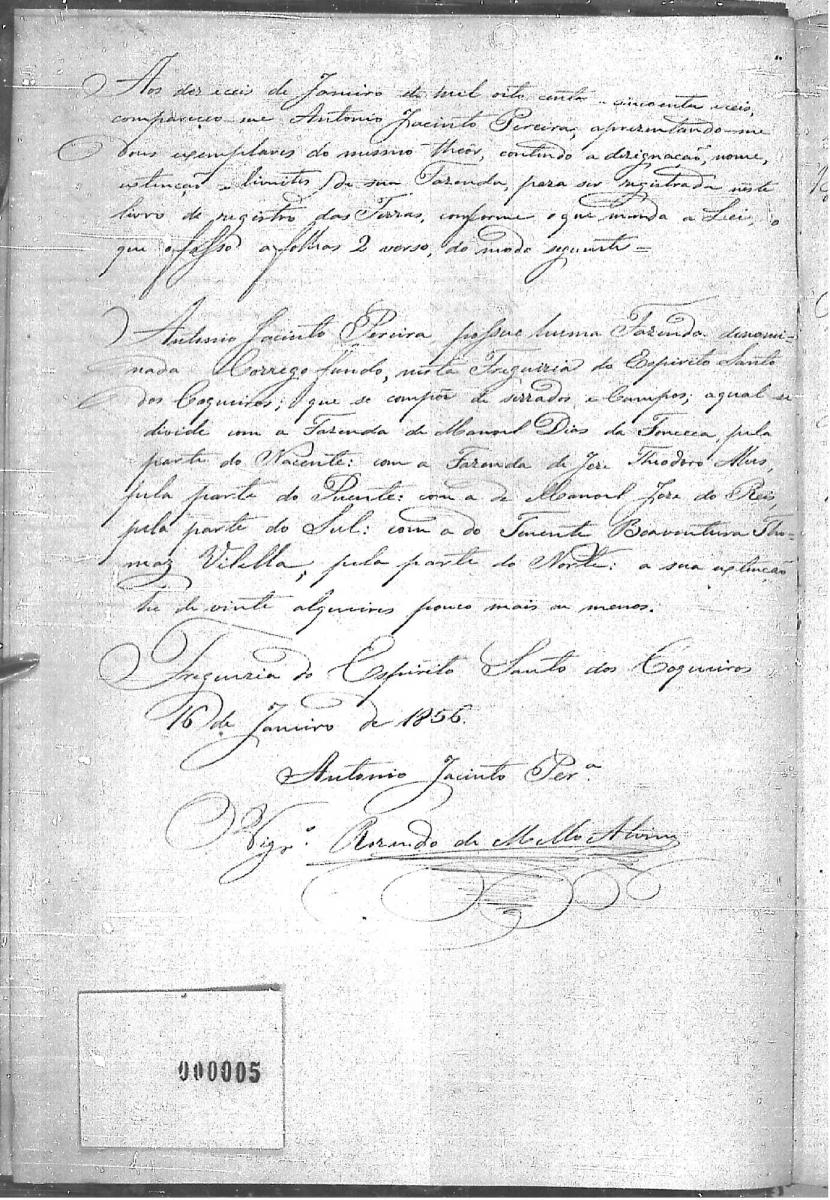 Aos dezeceis de Janeiro de mil oito centos e cincoenta e ceis,
compareceo-me Antonio Jacinto Pereira, aprezentando-me
dous exemplares do mesmo theor, contendo a dezignação, nome,
extinção e limites de sua Fazenda, para ser registrada neste
livro de registro das Terras, conforme o que manda a Lei, o
que o fasso a folhas 2 verso, do modo seguinte=
Antonio Jacinto Pereira, possue huma Fazenda denomi-
nada Corrego fundo, nesta Freguizia do Espirito Santo
dos Coqueiros; que se compõe de serrados e Campos; a qual se
divide com a Fazenda de Manoel Dias da Fonceca, pela
parte do Nacente: com a Fazenda de Joze Thodoro Alves,
pela parte do Puente: com a de Manoel Joze do Reis,
pela parte do Sul: com a do Tenente Boaventura Tho-
maz Vilella, pela parte do Norte: a sua extinção
he de vinte alqueires pouco mais ou menos.
Freguizia do Espirito Santo dos Coqueiros
16 de Janeiro de 1856.
Antonio Jacinto Per.ª
Vigr.º Rozendo de Mello
000005